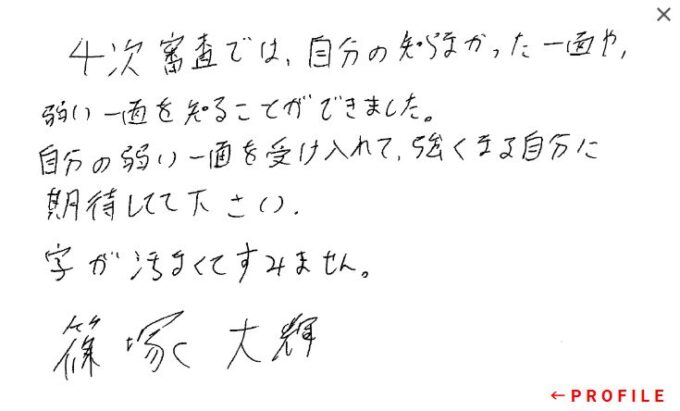 4次審査では、自分の知らなかった一面や、
弱い一面を知ることができました。
自分の弱い一面を受け入れて、強くなる自分に
期待してて下さい.
字が汚なくてすみません。
篠塚 大輝
←PROFILE